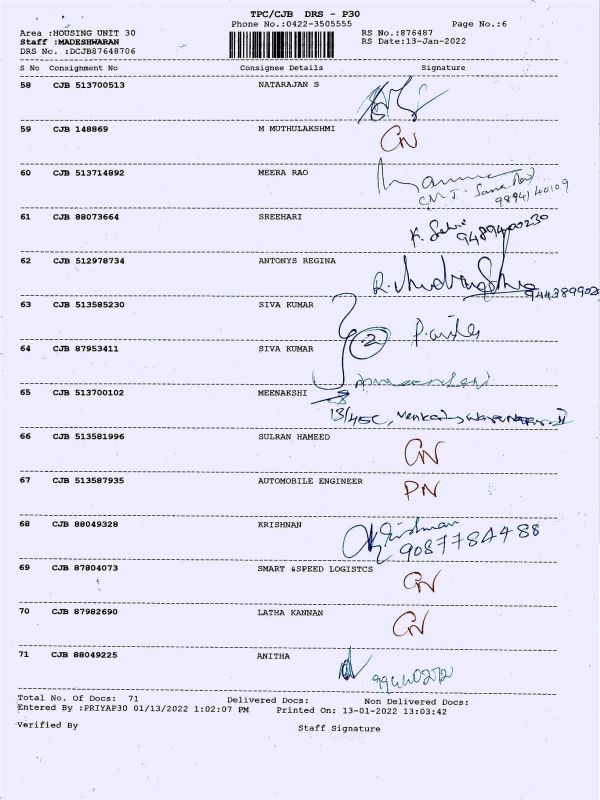 TPC/CJB DRS - P30
Phone No.:0422-3505555 Page No.:6
Area :HOUSING UNIT 30 RS No.:876487
Staff :MADESHWARAN RS Date:13-Jan-2022
DRS No. :DCJB87648706
S No Consignment No Consignee Details Signature
58 CJB 513700513 NATARAJAN S
59 CJB 148869 M MUTHULAKSHMI
CN
60 CJB 513714892 MEERA RAO
9894140109
61 CJB 88073664 SREEHARI
K.
9489400230
62 CJB 512978734 ANTONYS REGINA
944389902
63 CJB 513585230 SIVA KUMAR
2
64 CJB 87953411 SIVA KUMAR
65 CJB 513700102 MEENAKSHI
13/45C,
66 CJB 513581996 SULRAN HAMEED
CN
67 CJB 513587935 AUTOMOBILE ENGINEER
PN
68 CJB 88049328 KRISHNAN
Krishnan
9087784488
69 CJB 87804073 SMART &SPEED LOGISTCS
CN
70 CJB 87982690 LATHA KANNAN
CN
71 CJB 88049225 ANITHA
Total No. Of Docs: 71 Delivered Docs: Non Delivered Docs:
Entered By :PRIYAP30 01/13/2022 1:02:07 PM Printed On: 13-01-2022 13:03:42
Verified By Staff Signature